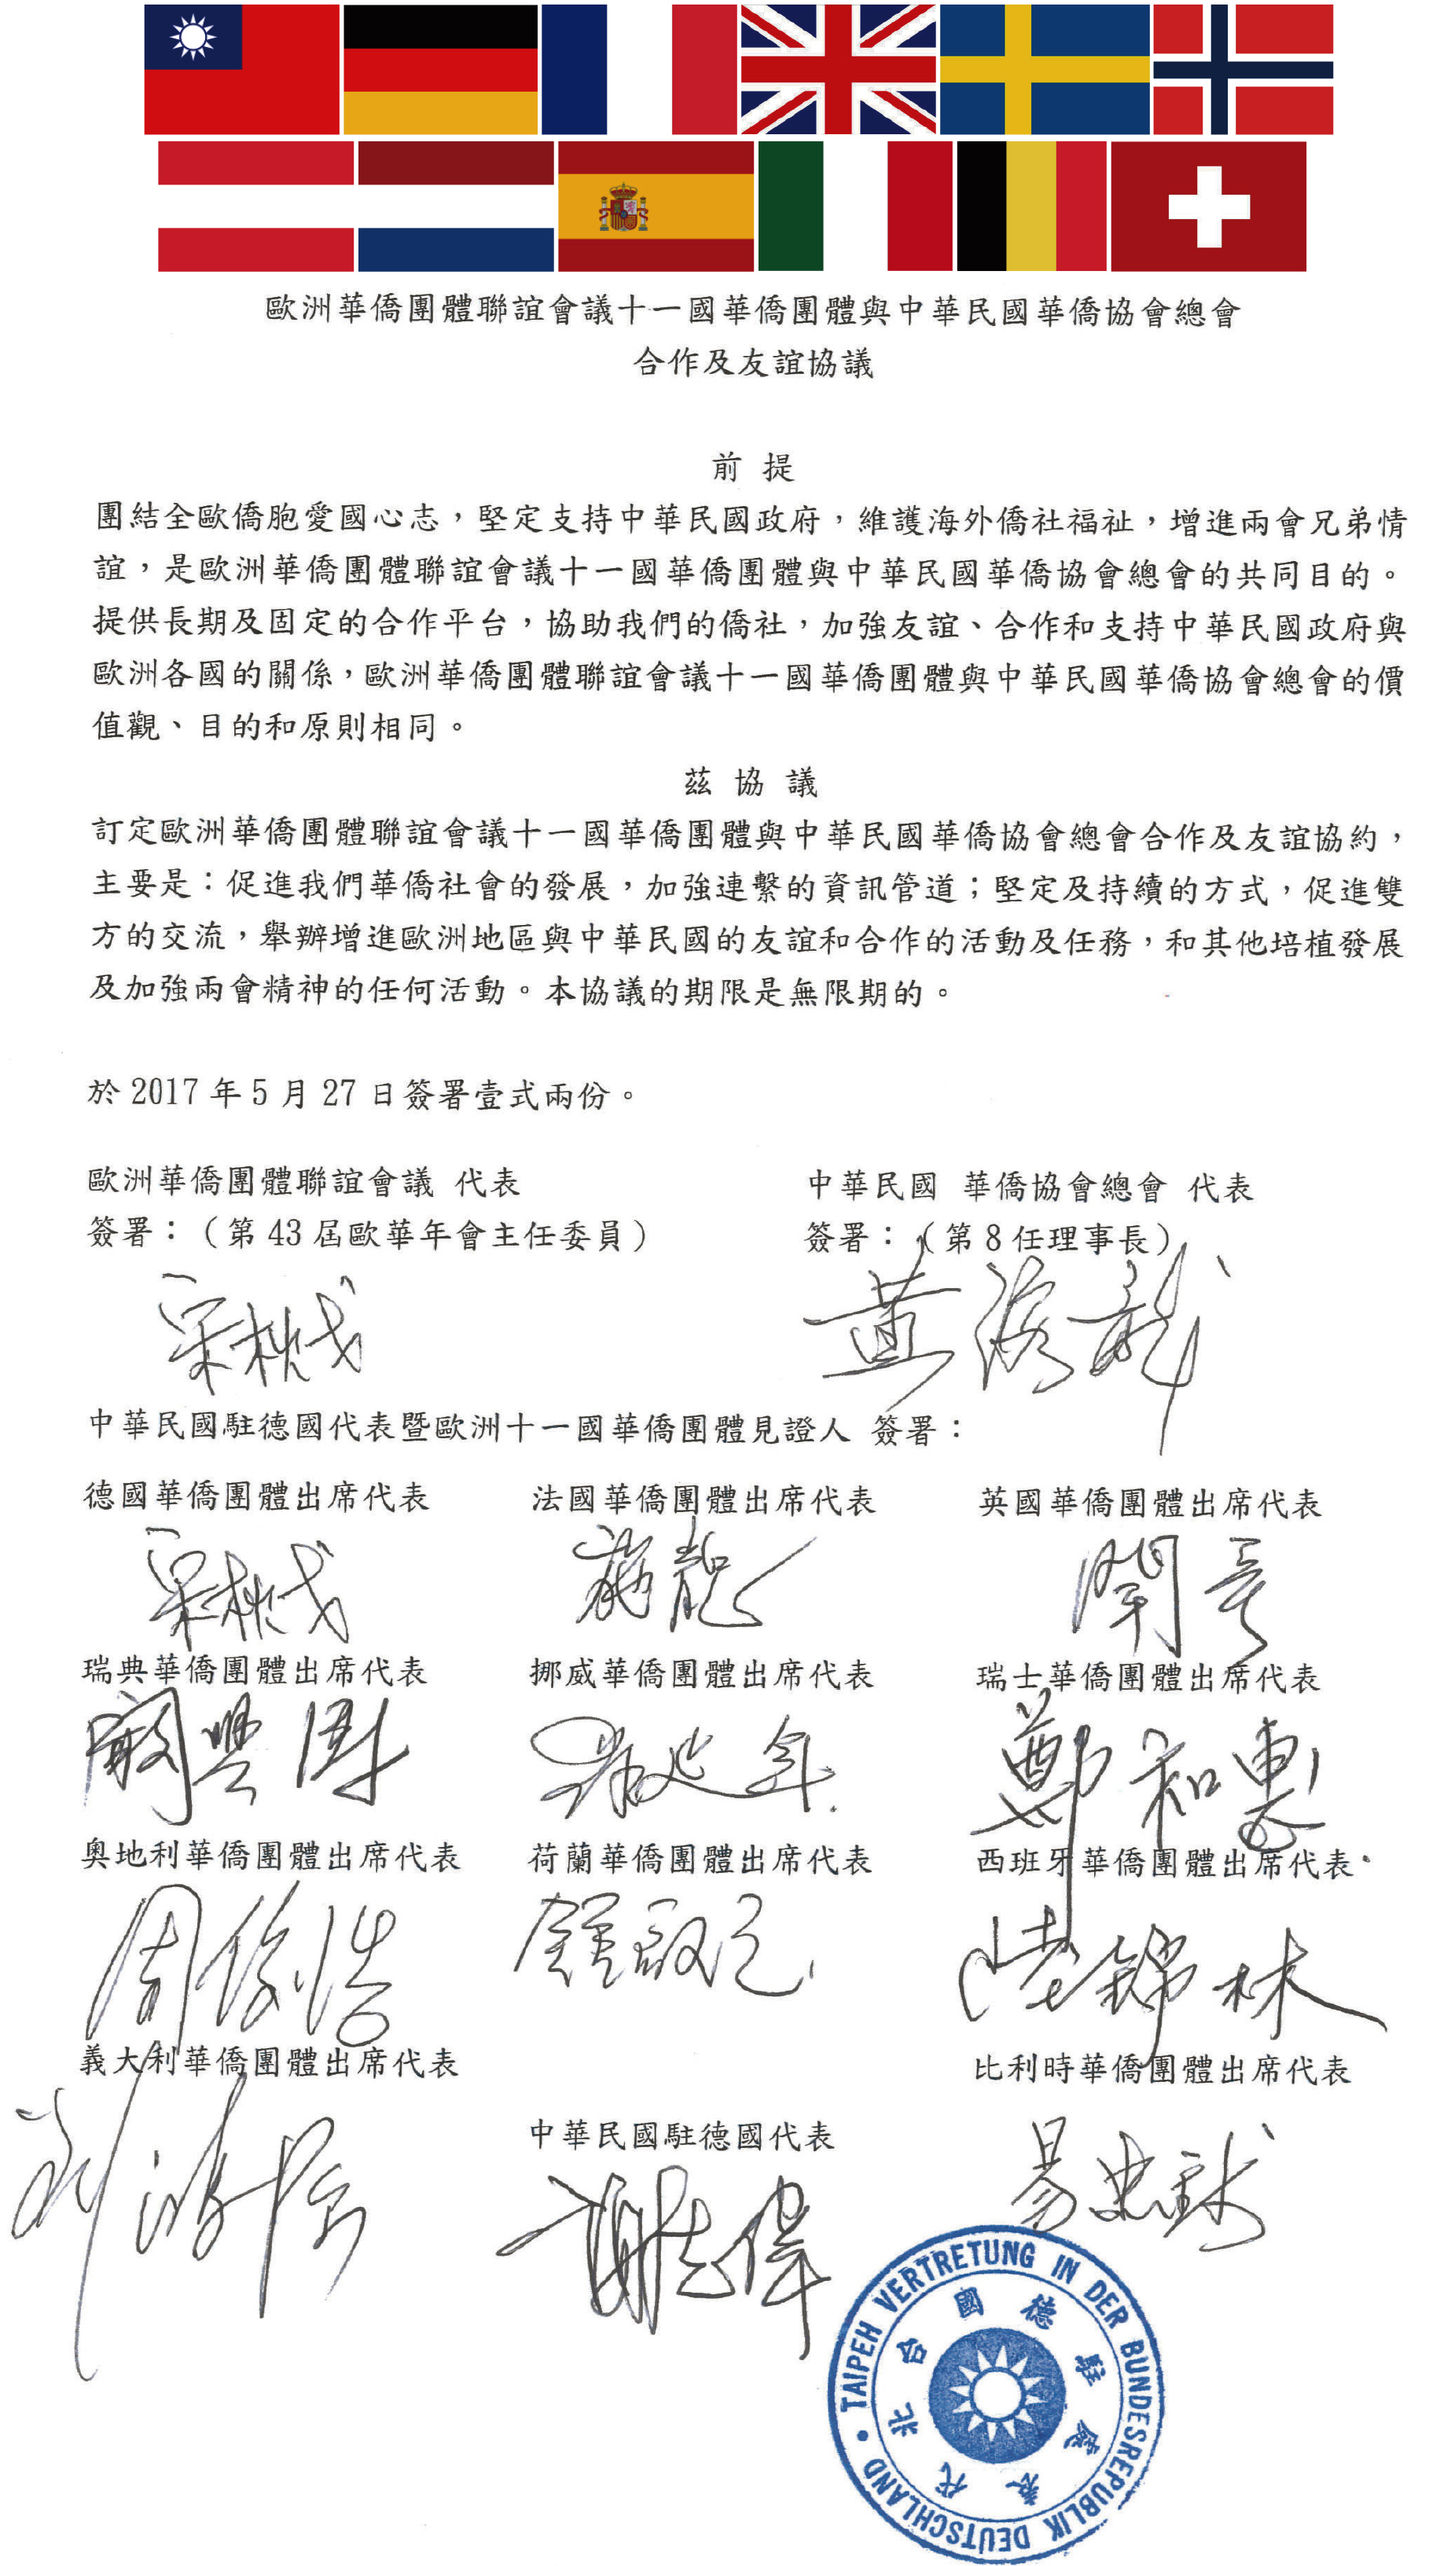 歐洲華僑團體聯誼會議十一國華僑團體與中華民國華僑協會總會
合作及友誼協議
前 提
團結全歐僑胞愛國心志，堅定支持中華民國政府，維護海外僑社福祉，增進兩會兄弟情
誼，是歐洲華僑團體聯誼會議十一國華僑團體與中華民國華僑協會總會的共同目的。
提供長期及固定的合作平台，協助我們的僑社，加強友誼、合作和支持中華民國政府與
歐洲各國的關係，歐洲華僑團體聯誼會議十一國華僑團體與中華民國華僑協會總會的價
值觀、目的和原則相同。
茲 協 議
訂定歐洲華僑團體聯誼會議十一國華僑團體與中華民國華僑協會總會合作及友誼協約，
主要是：促進我們華僑社會的發展，加強連繫的資訊管道；堅定及持續的方式，促進雙
方的交流，舉辦增進歐洲地區與中華民國的友誼和合作的活動及任務，和其他培植發展
及加強兩會精神的任何活動。本協議的期限是無限期的。
於 2017 年 5 月 27 日簽署壹式兩份。
歐洲華僑團體聯誼會議 代表
簽署：（第 43 屆歐華年會主任委員）
中華民國 華僑協會總會 代表
簽署：（第 8 任理事長）
中華民國駐德國代表暨歐洲十一國華僑團體見證人 簽署：
德國華僑團體出席代表
法國華僑團體出席代表
英國華僑團體出席代表
瑞典華僑團體出席代表
挪威華僑團體出席代表
瑞士華僑團體出席代表
鄭和惠
奧地利華僑團體出席代表
荷蘭華僑團體出席代表
西班牙華僑團體出席代表
周俊浩
陸錦林
義大利華僑團體出席代表
比利時華僑團體出席代表
中華民國駐德國代表
謝志偉
TAIPEH VERTRETUNG IN DER BUNDESREPUBLIK DEUTSCHLAND
駐德國台北代表處